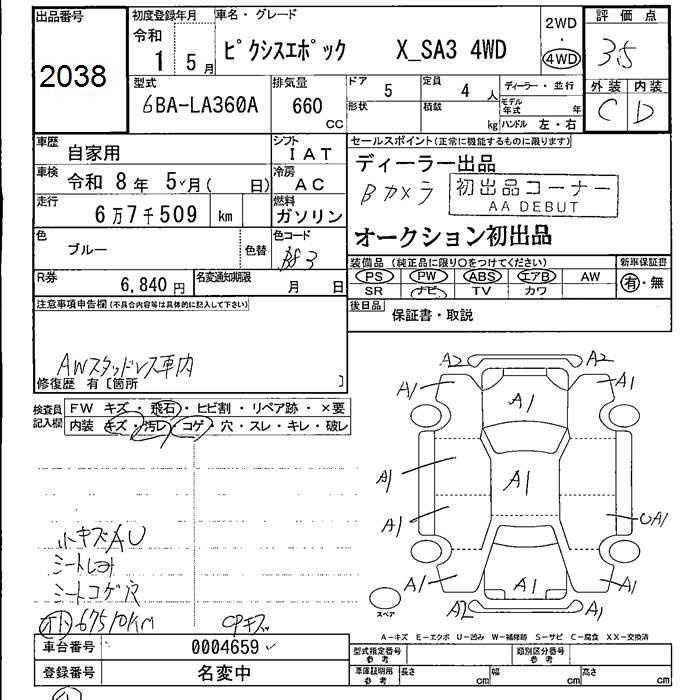 出品番号
2038
初度登録年月
令和
1 5月
車名・グレード
ピクシスエポック X_SA3 4WD
2WD
・
4WD
評価点
3.5
外装 内装
C D
型式
6BA-LA360A
排気量
660
CC
ドア 5
形状
定員 4 人
積載 kg
ディーラー・並行
モデル年式 年
ハンドル 左・右
車歴 自家用
シフト IAT
車検 令和 8年 5月( 日)
冷房 AC
走行 6万7千509 km
燃料 ガソリン
色 ブルー 色替
色コード
R券 6,840円
名変通知期限 月 日
セールスポイント(正常に機能するものに限ります)
ディーラー出品
Bカメラ
初出品コーナー
AA DEBUT
オークション初出品
装備品(純正品に限り○をつけてください)
PS PW ABS エアB AW
SR ナビ TV カワ
新車保証書
有・無
後日品
保証書・取説
注意事項申告欄(不具合内容等は具体的に記入して下さい)
AWスタッドレス車内
修復歴 有〔箇所 〕
検査員記入欄
FW キズ・飛石・ヒビ割・リペア跡・×要
内装 キズ・汚レ・コゲ・穴・スレ・キレ・破レ
小キズAU
シートヨゴレ
シートコゲ穴
67510KM
CPキズ
A2 A2
A1 A1 A1
A1 A1
A1 UA1
A1 A1 A1
A2 A1
スペア
A-キズ E-エクボ U-凹み W-補修跡 S-サビ C-腐食 XX-交換済
車台番号 0004659
登録番号 名変中
型式指定番号
参考
類別区分番号
参考
車庫証明用
参考
長さ cm
幅 cm
高さ cm